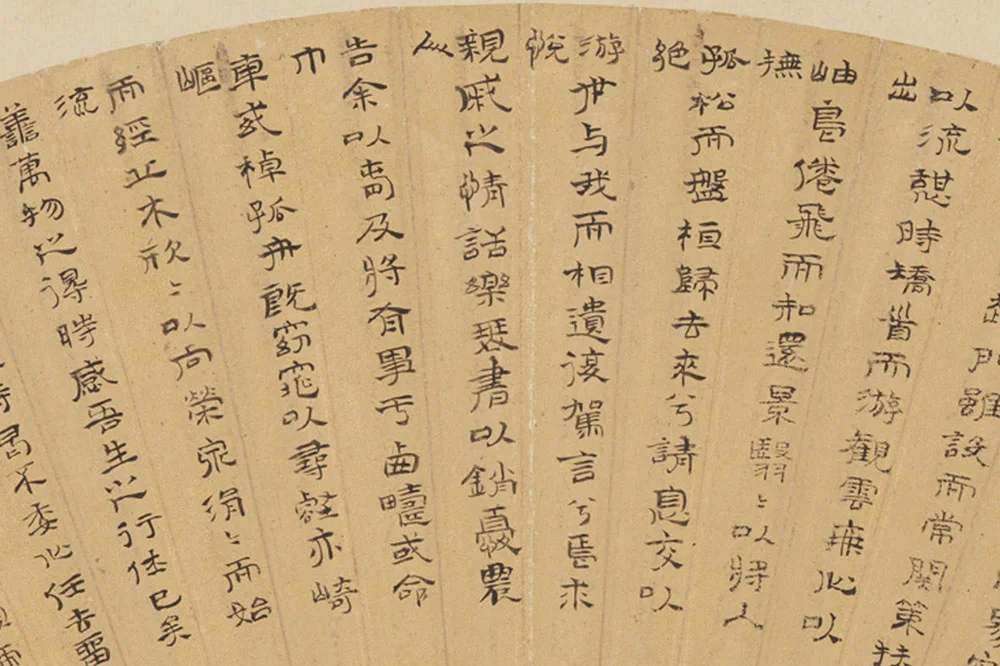 門雖設而常關策扶
以流憩時矯首而游觀雲無心以
出
岫鳥倦飛而知還景翳〻以將入
撫
孤松而盤桓歸去來兮請息交以
絕
游世与我而相遺復駕言兮焉求
悅
親戚之情話樂琴書以銷憂農
人
告余以春及將有事乎西疇或命
巾
車或棹孤舟既窈窕以尋壑亦崎
嶇
而經丘木欣〻以向榮泉涓〻而始
流
善萬物之得時感吾生之行休已矣
時曷不委心任去留